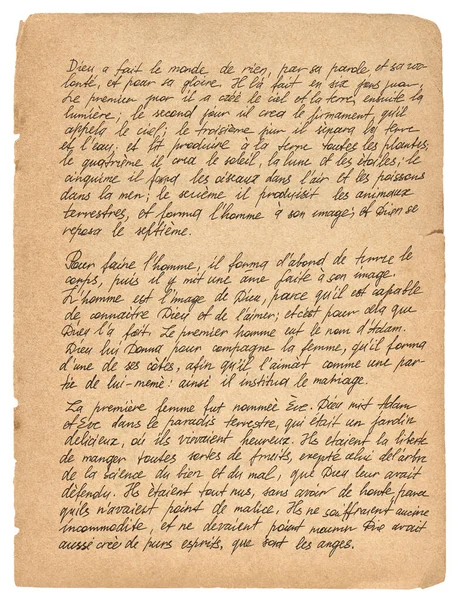 Dieu a fait le monde de rien, par sa parole et sa vo-
lonté, et pour sa gloire. Il l'a fait en six jours
Le premier jour il a créé le ciel et la terre, ensuite la
lumière; le second jour il crea le firmament, qu'il
appela le ciel; le troisième jour il sépara la terre
et l'eau, et fit produire à la terre toutes les plantes;
le quatrième il crea le soleil, la lune et les étoiles; le
cinquime il les oiseaux dans l'air et les poissons
dans la mer; le sixième il produisit les animaux
terrestres, et forma l'homme à son image; et Dieu se
reposa le septième.
Pour faire l'homme, il forma d'abord de terre le
corps, puis il y mit une ame faite à son image.
L'homme est l'image de Dieu, parce qu'il est capable
de connaitre Dieu et de l'aimer; et c'est pour cela que
Dieu l'a fait. Le premier homme eut le nom d'Adam.
Dieu lui donna pour compagne la femme, qu'il forma
d'une de ses côtes, afin qu'il l'aimât comme une par-
tie de lui-meme: ainsi il institua le mariage.
La première femme fut nommée Eve. Dieu mit Adam
et Eve dans le paradis terrestre, qui était un jardin
delicieux, où ils vivaient heureux. Ils étaient la liberté
de manger toutes sortes de fruits, exepté celui de l'arbre
de la science du bien et du mal, que Dieu leur avait
défendu. Ils étaient tout nus, sans avoir de honte, parce
qu'ils n'avaient point de malice. Ils ne souffraient aucune
incommodité, et ne devaient point mourir. Dieu avait
aussi créé de purs esprits, que sont les anges.